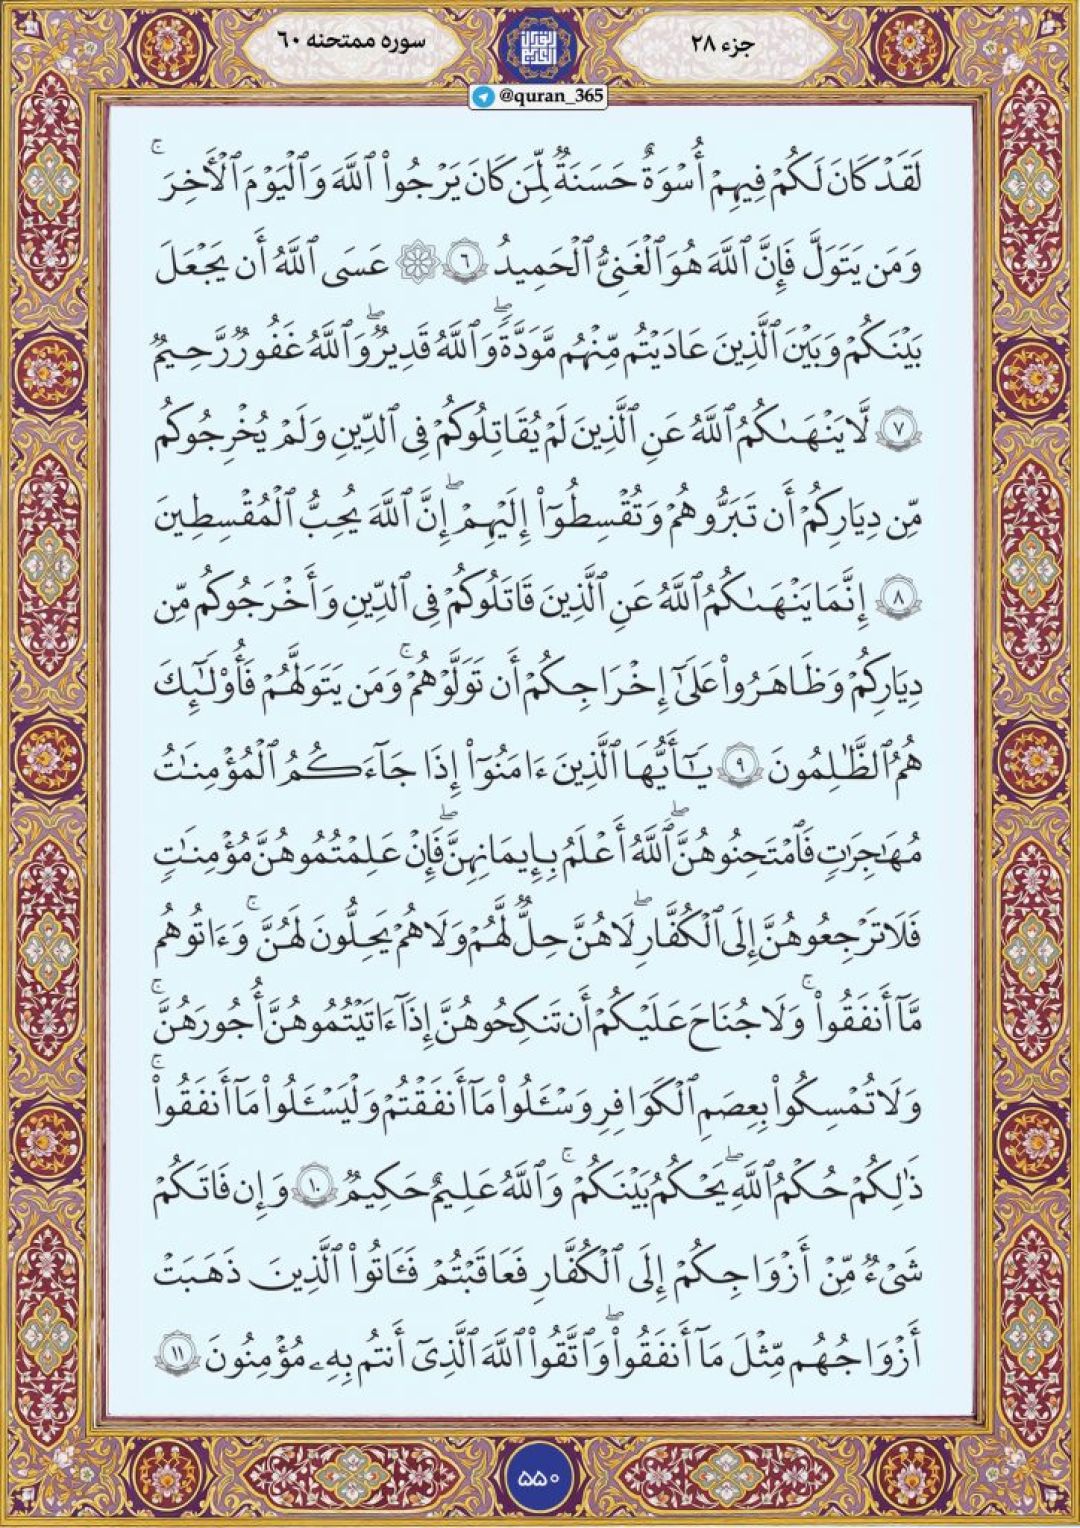 جزء ۲۸
سوره ممتحنه ۶۰
@quran_365
لَقَدْ كَانَ لَكُمْ فِيهِمْ أُسْوَةٌ حَسَنَةٌ لِّمَن كَانَ يَرْجُوا۟ ٱللَّهَ وَٱلْيَوْمَ ٱلْـَٔاخِرَ ۚ
وَمَن يَتَوَلَّ فَإِنَّ ٱللَّهَ هُوَ ٱلْغَنِىُّ ٱلْحَمِيدُ ٦ ۞ عَسَى ٱللَّهُ أَن يَجْعَلَ
بَيْنَكُمْ وَبَيْنَ ٱلَّذِينَ عَادَيْتُم مِّنْهُم مَّوَدَّةً ۚ وَٱللَّهُ قَدِيرٌ ۚ وَٱللَّهُ غَفُورٌ رَّحِيمٌ
٧ لَّا يَنْهَىٰكُمُ ٱللَّهُ عَنِ ٱلَّذِينَ لَمْ يُقَاتِلُوكُمْ فِى ٱلدِّينِ وَلَمْ يُخْرِجُوكُم
مِّن دِيَارِكُمْ أَن تَبَرُّوهُمْ وَتُقْسِطُوٓا۟ إِلَيْهِمْ ۖ إِنَّ ٱللَّهَ يُحِبُّ ٱلْمُقْسِطِينَ
٨ إِنَّمَا يَنْهَىٰكُمُ ٱللَّهُ عَنِ ٱلَّذِينَ قَاتَلُوكُمْ فِى ٱلدِّينِ وَأَخْرَجُوكُم مِّن
دِيَارِكُمْ وَظَاهَرُوا۟ عَلَىٰٓ إِخْرَاجِكُمْ أَن تَوَلَّوْهُمْ ۚ وَمَن يَتَوَلَّهُمْ فَأُو۟لَـٰٓئِكَ
هُمُ ٱلظَّـٰلِمُونَ ٩ يَـٰٓأَيُّهَا ٱلَّذِينَ ءَامَنُوٓا۟ إِذَا جَآءَكُمُ ٱلْمُؤْمِنَـٰتُ
مُهَـٰجِرَٰتٍ فَٱمْتَحِنُوهُنَّ ۖ ٱللَّهُ أَعْلَمُ بِإِيمَـٰنِهِنَّ ۖ فَإِنْ عَلِمْتُمُوهُنَّ مُؤْمِنَـٰتٍ
فَلَا تَرْجِعُوهُنَّ إِلَى ٱلْكُفَّارِ ۖ لَا هُنَّ حِلٌّ لَّهُمْ وَلَا هُمْ يَحِلُّونَ لَهُنَّ ۚ وَءَاتُوهُم
مَّآ أَنفَقُوا۟ ۚ وَلَا جُنَاحَ عَلَيْكُمْ أَن تَنكِحُوهُنَّ إِذَآ ءَاتَيْتُمُوهُنَّ أُجُورَهُنَّ ۚ
وَلَا تُمْسِكُوا۟ بِعِصَمِ ٱلْكَوَافِرِ وَسْـَٔلُوا۟ مَآ أَنفَقْتُمْ وَلْيَسْـَٔلُوا۟ مَآ أَنفَقُوا۟ ۚ
ذَٰلِكُمْ حُكْمُ ٱللَّهِ ۖ يَحْكُمُ بَيْنَكُمْ ۚ وَٱللَّهُ عَلِيمٌ حَكِيمٌ ١٠ وَإِن فَاتَكُمْ
شَىْءٌ مِّنْ أَزْوَاجِكُمْ إِلَى ٱلْكُفَّارِ فَعَاقَبْتُمْ فَـَٔاتُوا۟ ٱلَّذِينَ ذَهَبَتْ
أَزْوَاجُهُم مِّثْلَ مَآ أَنفَقُوا۟ ۖ وَٱتَّقُوا۟ ٱللَّهَ ٱلَّذِىٓ أَنتُم بِهِۦ مُؤْمِنُونَ ١١
۵۵۰